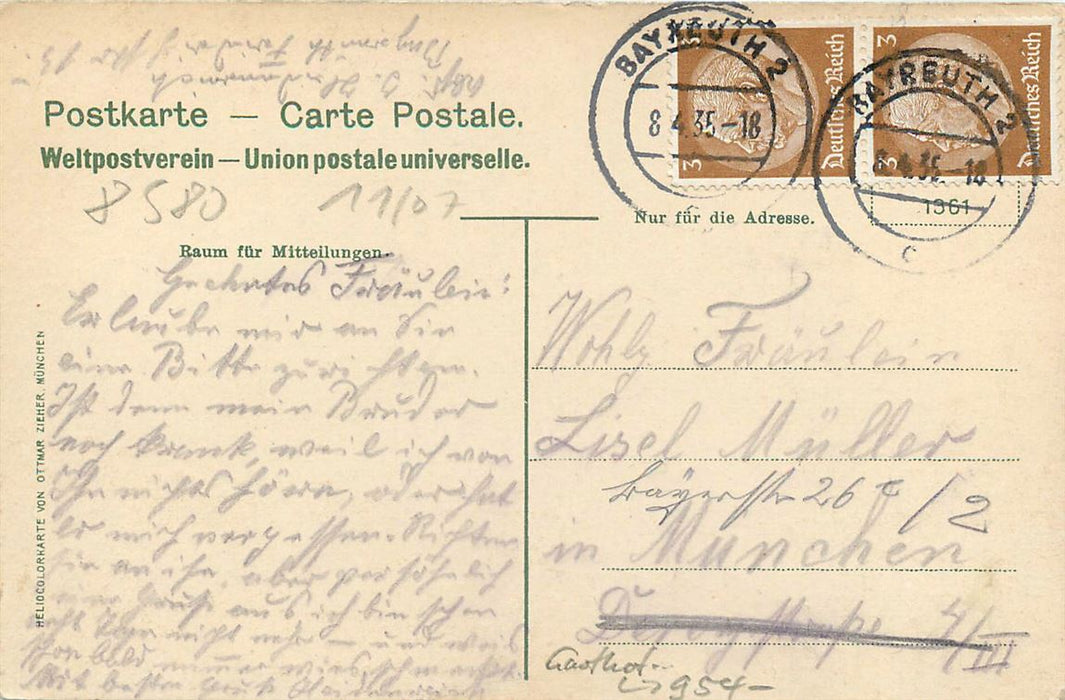 Postkarte — Carte Postale.
Weltpostverein — Union postale universelle.
8580 11/07
BAYREUTH 2
8.4.35-18
3
3
Deutsches Reich
BAYREUTH 2
8.4.35-18
c
3
3
Deutsches Reich
1961
Nur für die Adresse.
Raum für Mitteilungen.
Geehrtes Fräulein!
Erlaube mir an Sie
eine Bitte zu richten.
Ist denn mein Bruder
noch krank, weil ich von
Ihm nichts höre, oder hat
er mich vergessen. Richten
Sie an ihn, aber persönlich
einen Gruß aus ich bin schon
acht Tage nicht mehr — und weis
schon bald nimmer wies ihm geht
Mit besten Gruß
Fräulein
Lisel Müller
Bayerstr 26 /2
in München
4/III
Gasthof
954-
HELIOCOLORKARTE VON OTTMAR ZIEHER, MÜNCHEN